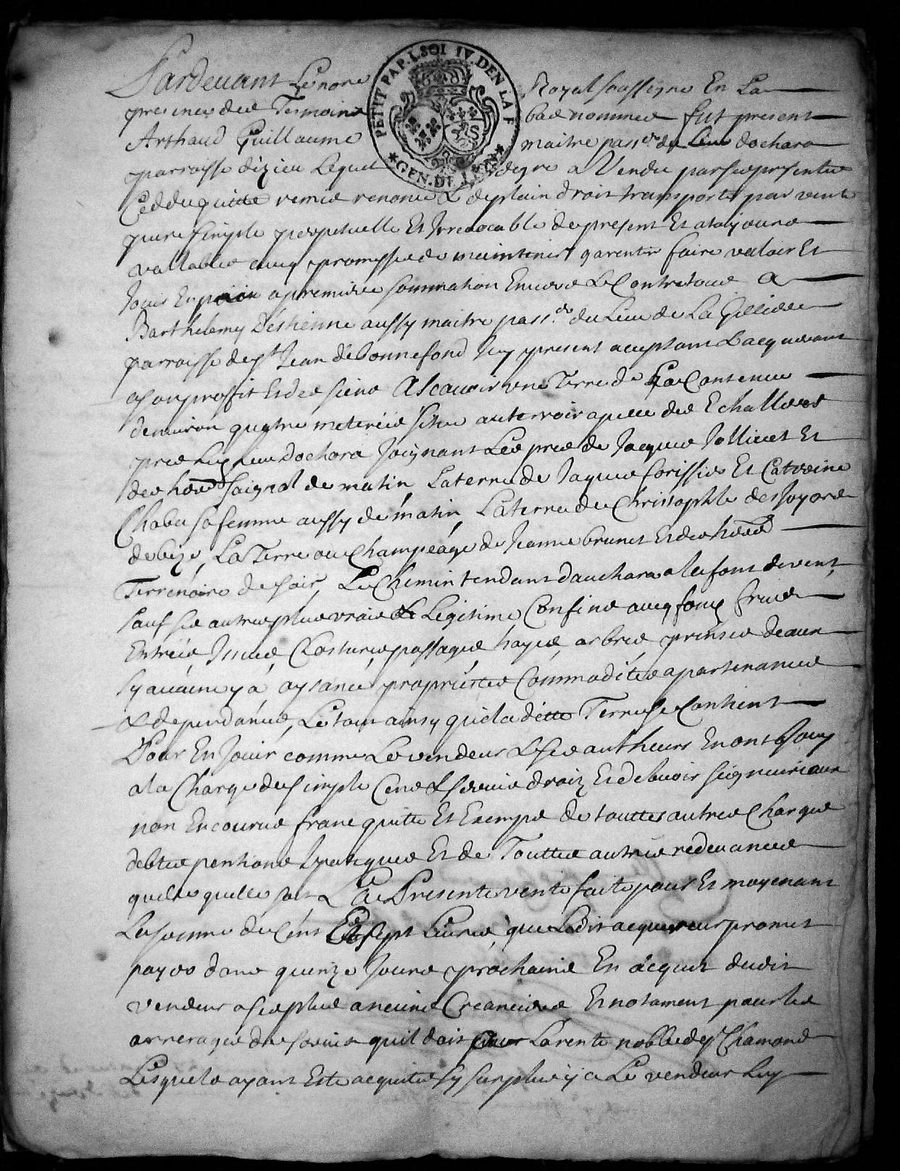 PETIT PAP. 1.SOL IV. DEN LA F
GEN. DE LYON
Pardevant Le no.re Royal soussigne En La
presence des Temoins bas nommes fut present
Arthaud Guillaume maitre pass.er du Lieu dochara
parroisse dizieu Lequel degre a Vendu par ses presentes
Cedde quitte remis renonce & de plain droit transporte par vente
pure simple perpetuelle Et Irrevocable de present Et a toujours
vallable avec promesse de maintenir garentir faire valoir Et
Jouir En paix a premiere sommation Envers Le Contre tous a
Barthelemy Destienne aussy maitre pass.er du Lieu de La
parroisse de st Jean de bonnefond Icy present aceptant Lacquerant
a son proffit Et des siens Ascavoir une Terre de La Contenue
denviron quatre meterée sitze au terroir apellé des Echallier
pres Le Lieu dochara Joignant Les pred de Jacque Jollivet Et
des hoirs Saignol de matin La terre de Jaque Et Catreine
Chaba sa femme aussy de matin, La terre de Christophle
de bize, La Terre ou Champeage de Jeanne brunet Et des hoirs
Terrenoire de soir, Le Chemin tendant dauchara a la font de vent
sauf ses autres plus vrais & Legitime Confins avec fons frice
Entrées Issues Clostures passages hayes arbres prinses deaux
sy aucune y a aysance propriettes Commodittes apartenances
& dependances, Le tout ainsy que ladite Terre se Contient
Pour En Jouir comme Le vendeur & ses autheurs En ont Jouy
a la Charge de simple Cens & servis droiz Et debvoir seigneuriaux
non Encourus franc quitte Et Exempt de touttes autres Charges
debtes pentions Ipotiques Et de Touttes autres redevances
quelles quelles soit La Presente vente faite pour Et moyenant
La somme de Cent sept Livres que Ledit acquereur promet
payer dans quinze Jours prochains En acquit dudit
vendeur a ses plus anciens Creanciers Et notament pour les
arrerages des servis quil doit pour La rente noble de st Chamond
Lesquels ayant Esté acquittés sy surplus y a Le vendeur Luy